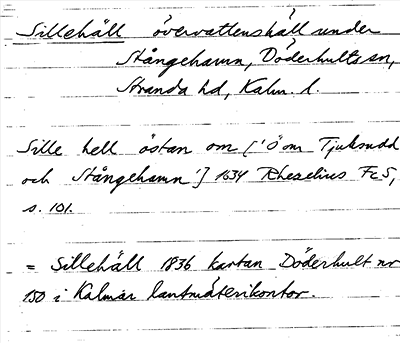 Sillehäll övervattenshäll under
Stångehamn, Döderhults sn,
Stranda hd, Kalm. l.
Sille hell östan om ['Ö om Tjuksudd
och Stångehamn'] 1634 Rhezelius FcS,
s. 101.
= Sillehäll 1836 kartan Döderhult nr
150 i Kalmar lantmäterikontor.